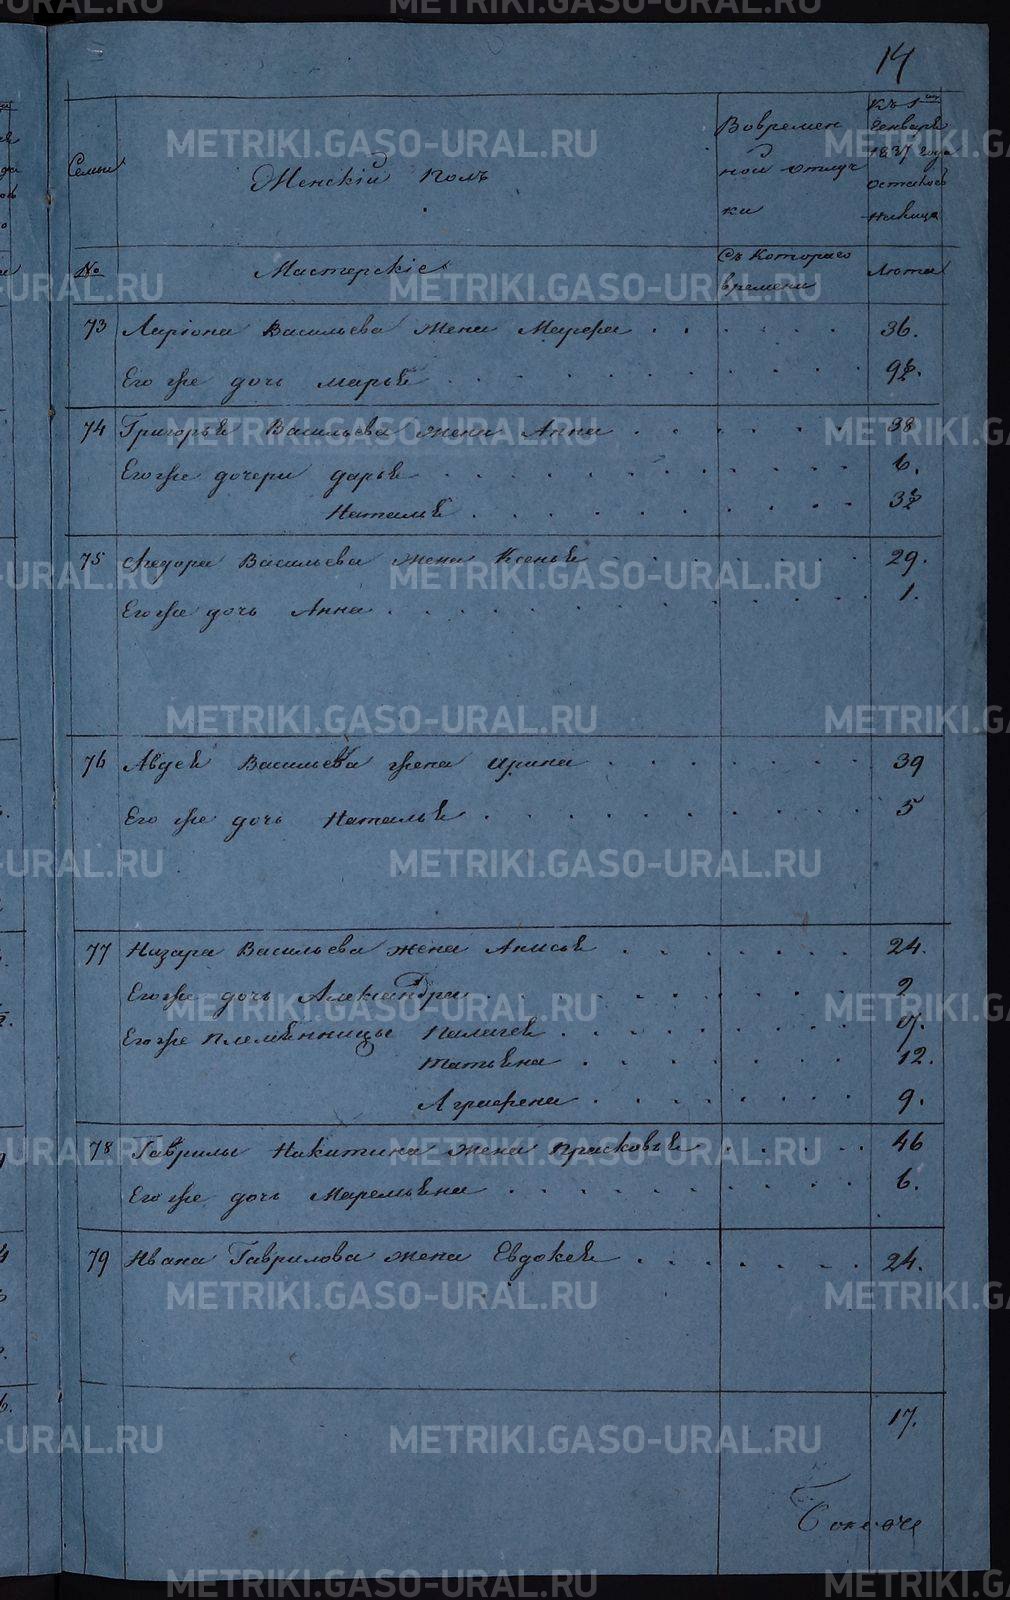 14
Семьи
Женскій полъ
Вовремен
ной отлуч
ки
Къ 1
Генваря
1837 года
№
Мастерскіе
Съ Котораго
времени
Лѣта
73 Ларіона Васильева жена Марфа 36.
Его же дочь марья 9½.
74 Григорья Васильева жена Анна 38
Его же дочери дарья 6.
Наталья 3½
75 Ѳедора Васильева жена Ксенья 29.
Его же дочь Анна 1.
76 Авдея Васильева жена Ирина 39
Его же дочь Наталья 5
77 Назара Васильева жена Анисья 24.
Его же дочь Александра 2
Его же племянницы Палагея
Татьяна 12.
Аграфена 9.
78 Гаврилы Никитина жена Прасковья 46
Его же дочь Маремьяна 6.
79 Ивана Гаврилова жена Евдокея 24.
17.
METRIKI.GASO-URAL.RU